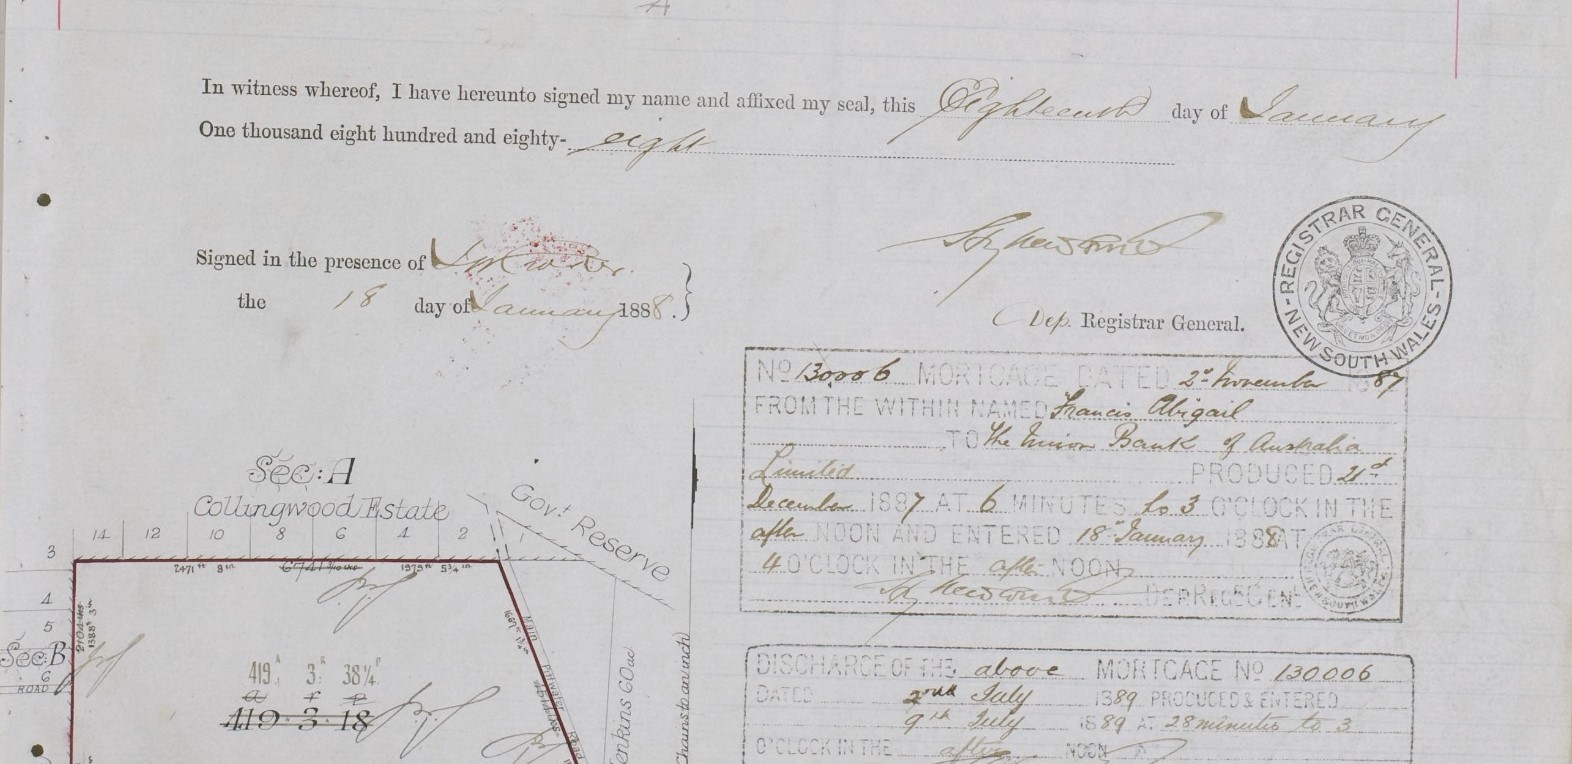 In witness whereof, I have hereunto signed my name and affixed my seal, this Eighteenth day of January
One thousand eight hundred and eighty- eight
REGISTRAR GENERAL
NEW SOUTH WALES
Signed in the presence of
the 18 day of January 1888.
Dep. Registrar General.
No 130006 MORTGAGE DATED 2d November 1887
FROM THE WITHIN NAMED Francis Abigail
TO The Union Bank of Australia
Limited PRODUCED 21st
December 1887 AT 6 MINUTES to 3 O'CLOCK IN THE
after NOON AND ENTERED 18th January 1888 AT
4 O'CLOCK IN THE after NOON
DEP REG GENL
DISCHARGE OF THE above MORTGAGE No 130006
DATED 2nd July 1889 PRODUCED & ENTERED
9th July 1889 AT 28 minutes to 3
O'CLOCK IN THE after NOON
Sec: A
Collingwood Estate
Govt Reserve
14 12 10 8 6 4 2 1
3
2471 ft 8 in 1979 ft 5¾ in
4
5
1388 ft 3 in
Sec B
6
ROAD
419A 3R 38¼P
A R P
419·3·18
Main Pittwater Road
Jenkins 60 ac